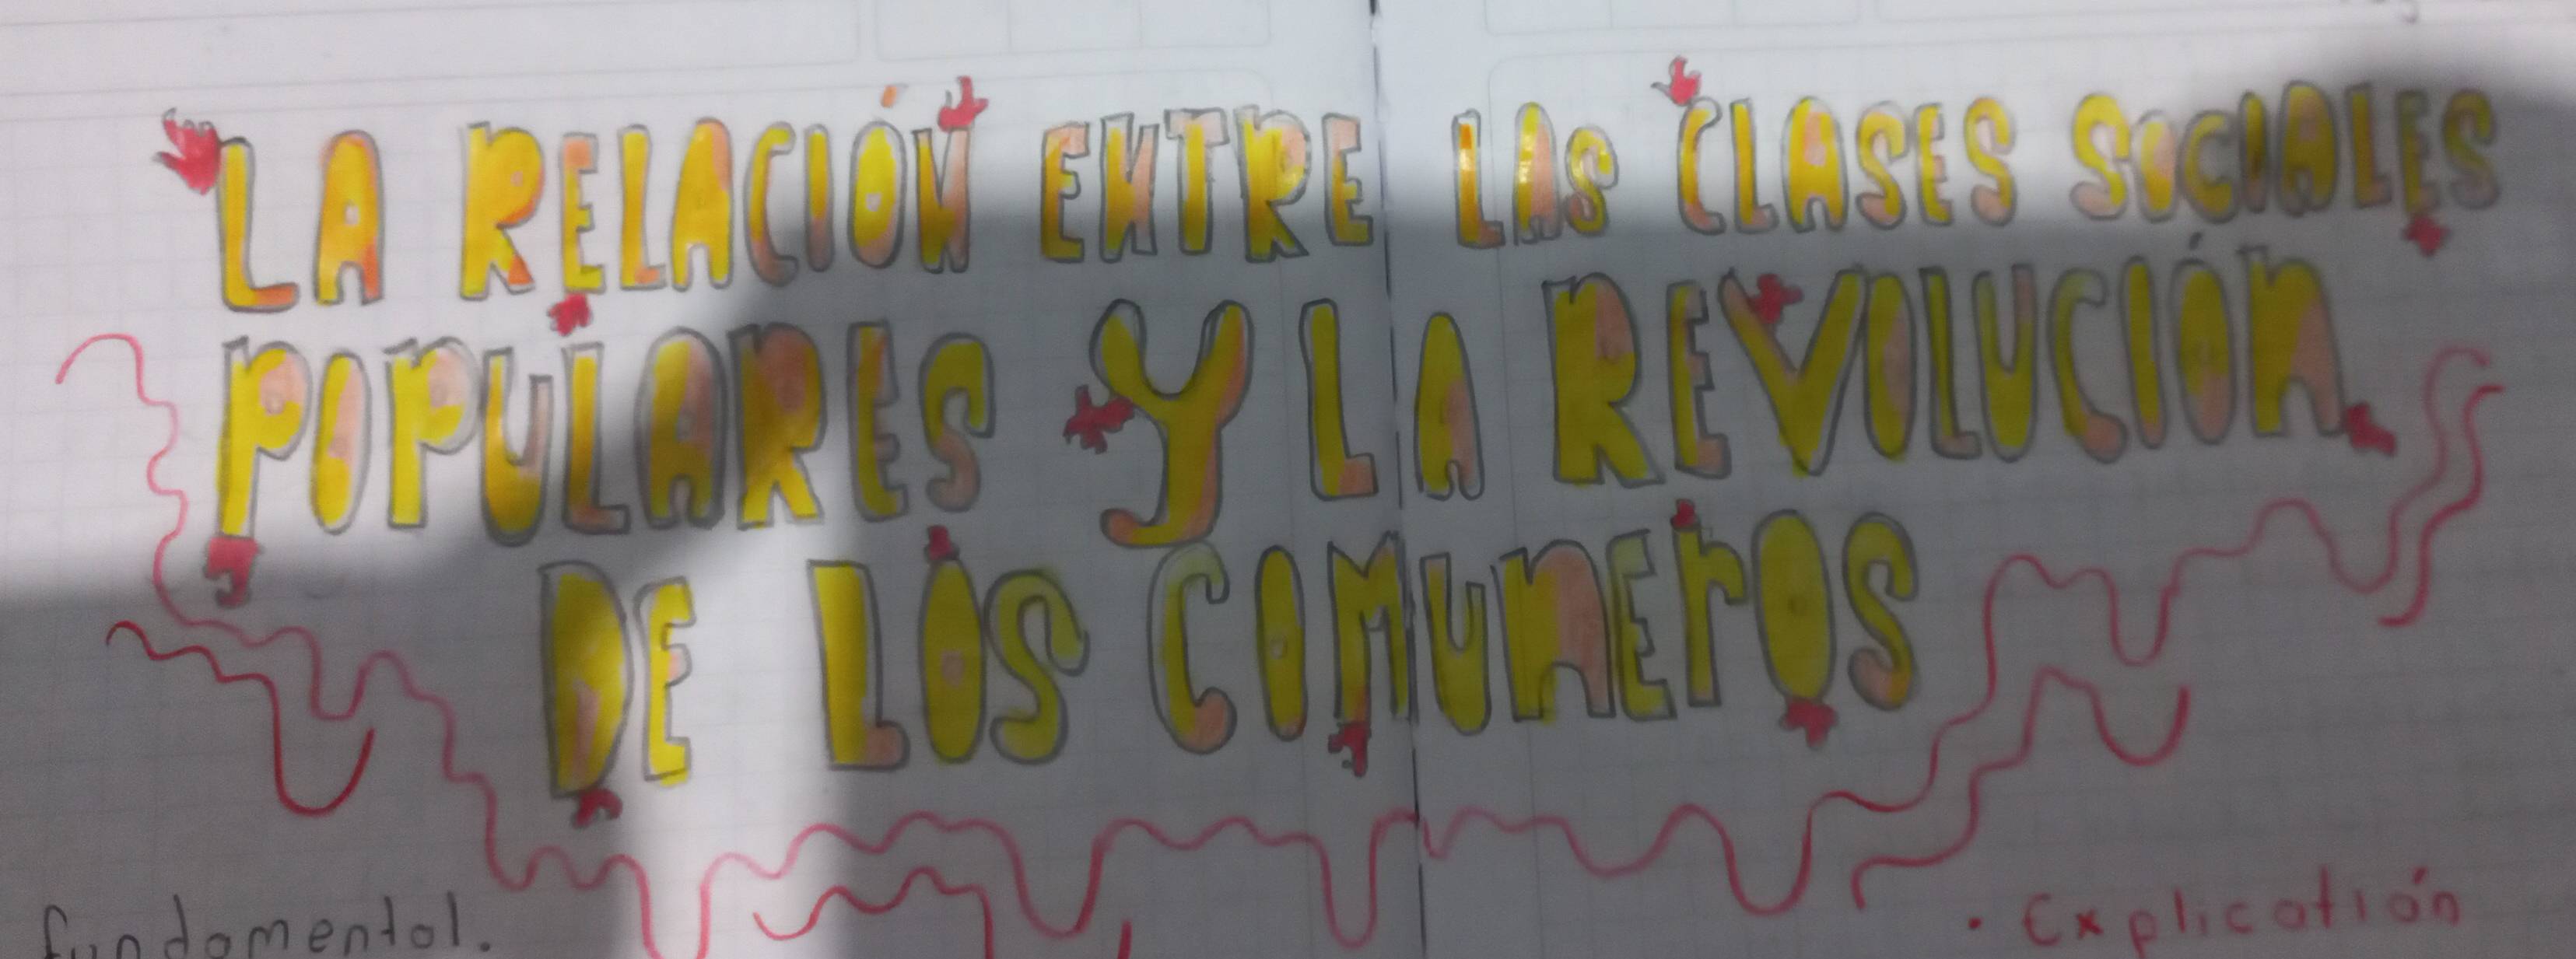 LA RELACIÓN ENTRE LAS CLASES SOCIALES
POPULARES Y LA REVOLUCIÓn
DE LOS COMUnErOS
fundamental.
• Explicatión